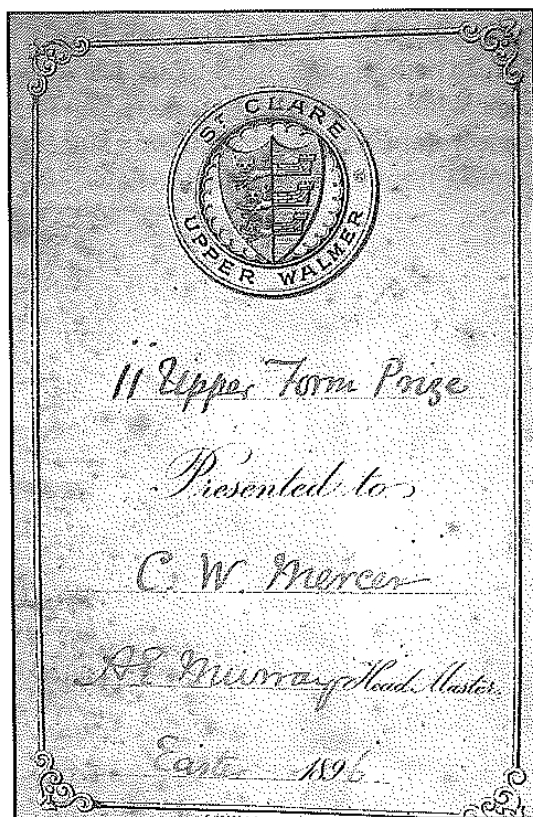 ST CLARE
UPPER WALMER
II Upper Form Prize
Presented to
C. W. Mercer
A E Murray Head Master.
Easter 1896